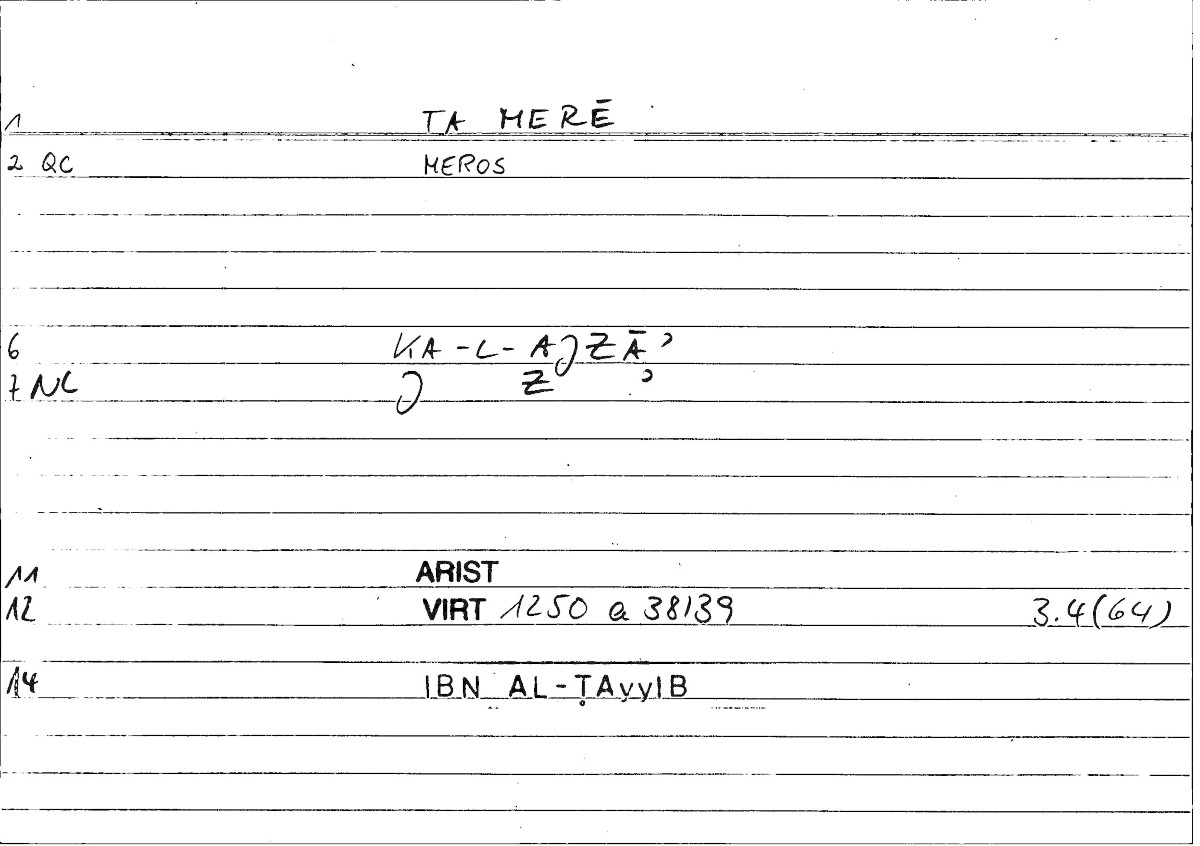 1 TA MERĒ
2 QC MEROS
6 KA-L-AJZĀʾ
7 NC J Z ʾ
11 ARIST
12 VIRT 1250 a 38/39 3.4(64)
14 IBN AL-ṬAyyIB